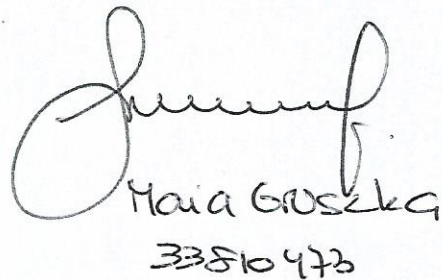 Maia Gruszka
33810473